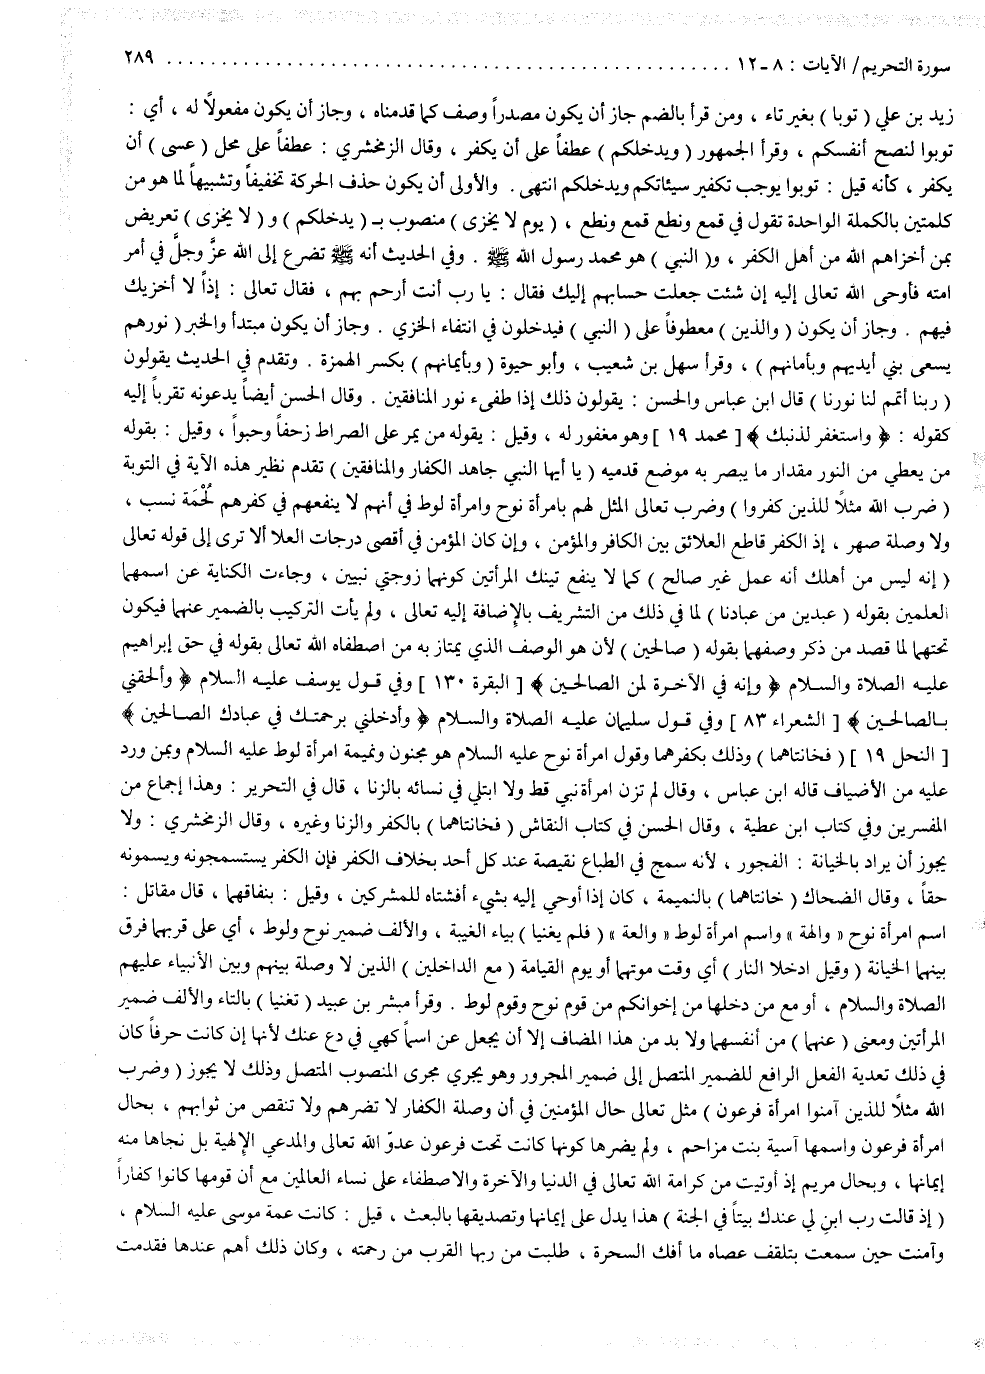 سورة التحريم/ الآيات : ٨ - ١٢ ........................................................ ٢٨٩
زيد بن علي ( توبا ) بغير تاء ، ومن قرأ بالضم جاز أن يكون مصدراً وصف كما قدمناه ، وجاز أن يكون مفعولاً له ، أي :
توبوا لنصح أنفسكم ، وقرأ الجمهور ( ويدخلكم ) عطفاً على أن يكفر ، وقال الزمخشري : عطفاً على محل ( عسى ) أن
يكفر ، كأنه قيل : توبوا يوجب تكفير سيئاتكم ويدخلكم انتهى . والأولى أن يكون حذف الحركة تخفيفاً وتشبيهاً لما هو من
كلمتين بالكملة الواحدة تقول في قمع ونطع قمع ونطع ، ( يوم لا يخزى ) منصوب بـ ( يدخلكم ) و ( لا يخزى ) تعريض
بمن أخزاهم الله من أهل الكفر ، و( النبي ) هو محمد رسول الله ﷺ . وفي الحديث أنه ﷺ تضرع إلى الله عزَّ وجلَّ في أمر
امته فأوحى الله تعالى إليه إن شئت جعلت حسابهم إليك فقال : يا رب أنت أرحم بهم ، فقال تعالى : إذاً لا أخزيك
فيهم . وجاز أن يكون ( والذين ) معطوفاً على ( النبي ) فيدخلون في انتفاء الخزي . وجاز أن يكون مبتدأ والخبر ( نورهم
يسعى بني أيديهم وبأمانهم ) ، وقرأ سهل بن شعيب ، وأبو حيوة ( وبأيمانهم ) بكسر الهمزة . وتقدم في الحديث يقولون
( ربنا أتمم لنا نورنا ) قال ابن عباس والحسن : يقولون ذلك إذا طفىء نور المنافقين . وقال الحسن أيضاً يدعونه تقرباً إليه
كقوله : ﴿ واستغفر لذنبك ﴾ [ محمد ١٩ ] وهو مغفور له ، وقيل : يقوله من يمر على الصراط زحفاً وحبواً ، وقيل : بقوله
من يعطي من النور مقدار ما يبصر به موضع قدميه ( يا أيها النبي جاهد الكفار والمنافقين ) تقدم نظير هذه الآية في التوبة
( ضرب الله مثلًا للذين كفروا ) وضرب تعالى المثل لهم بامرأة نوح وامرأة لوط في أنهم لا ينفعهم في كفرهم لُحْمَة نسب ،
ولا وصلة صهر ، إذ الكفر قاطع العلائق بين الكافر والمؤمن ، وإن كان المؤمن في أقصى درجات العلا ألا ترى إلى قوله تعالى
( إنه ليس من أهلك أنه عمل غير صالح ) كما لا ينفع تينك المرأتين كونهما زوجتي نبيين ، وجاءت الكناية عن اسمهما
العلمين بقوله ( عبدين من عبادنا ) لما في ذلك من التشريف بالإضافة إليه تعالى ، ولم يأت التركيب بالضمير عنهما فيكون
تحتهما لما قصد من ذكر وصفهما بقوله ( صالحين ) لأن هو الوصف الذي يمتاز به من اصطفاه الله تعالى بقوله في حق إبراهيم
عليه الصلاة والسلام ﴿ وإنه في الآخرة لمن الصالحين ﴾ [ البقرة ١٣٠ ] وفي قول يوسف عليه السلام ﴿ وألحقني
بالصالحين ﴾ [ الشعراء ٨٣ ] وفي قول سليمان عليه الصلاة والسلام ﴿ وأدخلني برحمتك في عبادك الصالحين ﴾
[ النحل ١٩ ] ( فخانتاهما ) وذلك بكفرهما وقول امرأة نوح عليه السلام هو مجنون ونميمة امرأة لوط عليه السلام وبمن ورد
عليه من الأضياف قاله ابن عباس ، وقال لم تزن امرأة نبي قط ولا ابتلي في نسائه بالزنا ، قال في التحرير : وهذا إجماع من
المفسرين وفي كتاب ابن عطية ، وقال الحسن في كتاب النقاش ( فخانتاهما ) بالكفر والزنا وغيره ، وقال الزمخشري : ولا
يجوز أن يراد بالخيانة : الفجور ، لأنه سمج في الطباع نقيصة عند كل أحد بخلاف الكفر فإن الكفر يستسمجونه ويسمونه
حقاً ، وقال الضحاك ( خانتاهما ) بالنميمة ، كان إذا أوحي إليه بشيء أفشتاه للمشركين ، وقيل : بنفاقهما ، قال مقاتل :
اسم امرأة نوح « والهة » واسم امرأة لوط « والعة » ( فلم يغنيا ) بياء الغيبة ، والألف ضمير نوح ولوط ، أي على قربهما فرق
بينهما الخيانة ( وقيل ادخلا النار ) أي وقت موتهما أو يوم القيامة ( مع الداخلين ) الذين لا وصلة بينهم وبين الأنبياء عليهم
الصلاة والسلام ، أو مع من دخلها من إخوانكم من قوم نوح وقوم لوط . وقرأ مبشر بن عبيد ( تغنيا ) بالتاء والألف ضمير
المرأتين ومعنى ( عنهما ) من أنفسهما ولا بد من هذا المضاف إلا أن يجعل عن اسماً كهي في دع عنك لأنها إن كانت حرفاً كان
في ذلك تعدية الفعل الرافع للضمير المتصل إلى ضمير المجرور وهو يجري مجرى المنصوب المتصل وذلك لا يجوز ( وضرب
الله مثلًا للذين آمنوا امرأة فرعون ) مثل تعالى حال المؤمنين في أن وصلة الكفار لا تضرهم ولا تنقص من ثوابهم ، بحال
امرأة فرعون واسمها آسية بنت مزاحم ، ولم يضرها كونها كانت تحت فرعون عدوّ الله تعالى والمدعي الإلهية بل نجاها منه
إيمانها ، وبحال مريم إذ أوتيت من كرامة الله تعالى في الدنيا والآخرة والاصطفاء على نساء العالمين مع أن قومها كانوا كفاراً
( إذ قالت رب ابنِ لي عندك بيتاً في الجنة ) هذا يدل على إيمانها وتصديقها بالبعث ، قيل : كانت عمة موسى عليه السلام ،
وآمنت حين سمعت بتلقف عصاه ما أفك السحرة ، طلبت من ربها القرب من رحمته ، وكان ذلك أهم عندها فقدمت